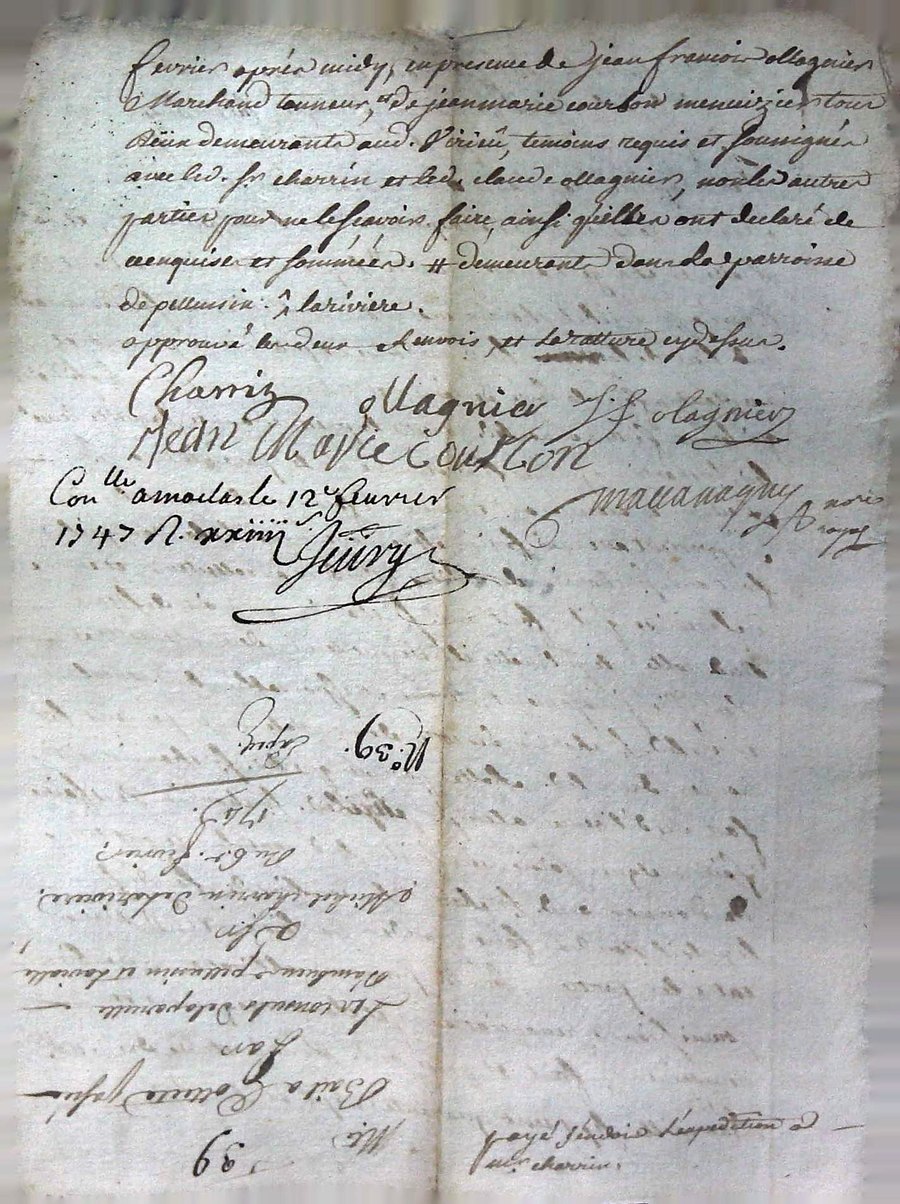 fevrier aprés midy, en presence de jean francois ollagnier
Marchand tanneur, et de jean marie courbon menuizier tous
deux demeurants aud. Virieu, temoins requis et soussignés
avec led. sr. charrin et led. claude ollagnier, non les autres
parties pour ne le scavoir faire, ainsi quelles ont declaré de
ce enquises et sommées. # demeurants dans la parroisse
de pellussin. ^ larivière.
approuvé les deux renvois, et la rature cy dessus.
Charrin ollagnier J. f. olagnier
Jean Marie courbon
Conlle a maclas le 12e fevrier
1747 R. xxiiii s
nore
royal
No. 39.
Du 6e. fevrier
Michel charrin Delarivière.
A sr
pellussin et
Les consuls Delaparcelle
Par
Bail a Collecte passé
39
payé je dois l'expedition a
charrin.